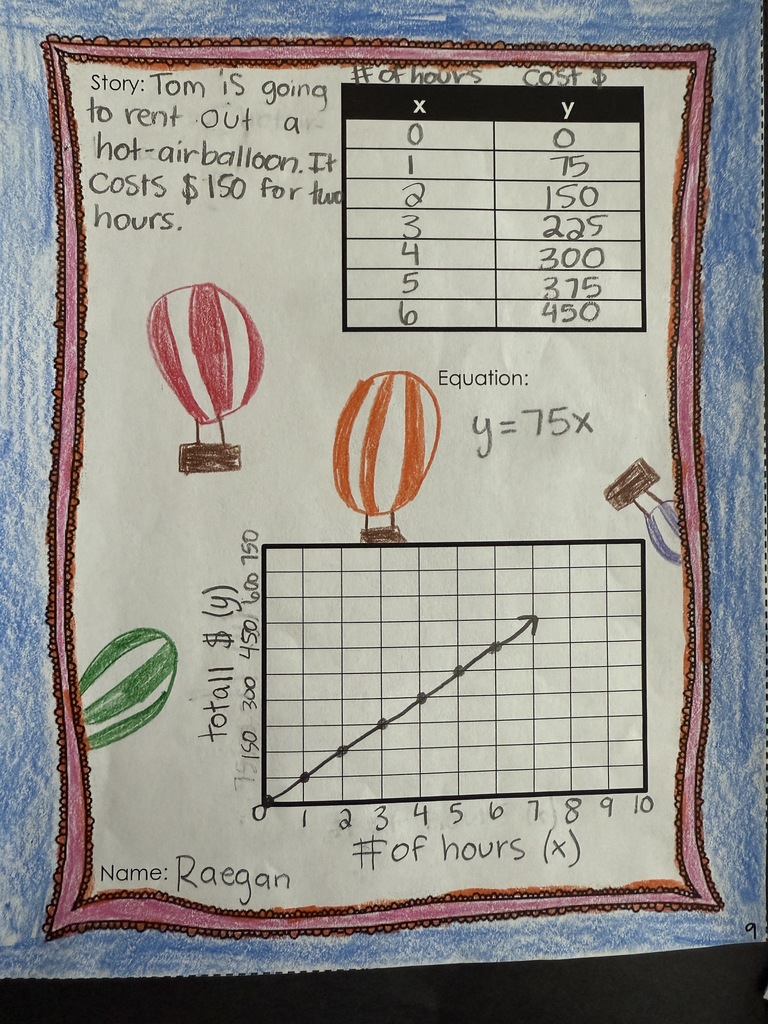 Story: Tom is going
to rent out a
hot-air balloon. It
costs $150 for two
hours.
# of hours cost $
x y
0 0
1 75
2 150
3 225
4 300
5 375
6 450
Equation:
y=75x
totall $ (y)
750
600
450
300
150
75
0 1 2 3 4 5 6 7 8 9 10
# of hours (x)
Name: Raegan
9